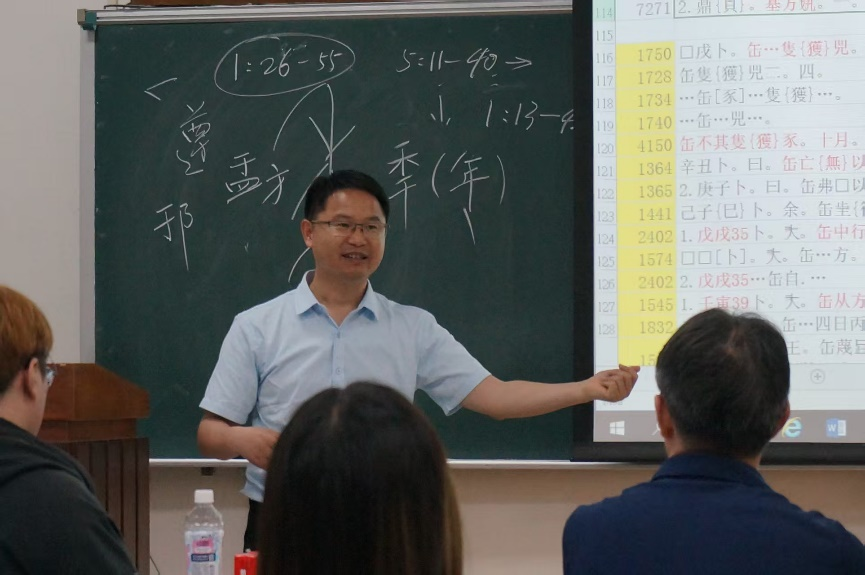 1:26-55
5:11-40→
小
1:13-4
尊
盂方
季(年)
邘
114 7271 2.鼎{貞}。基方
115
116 1750 □戊卜。缶…隻{獲}兕。
117 1728 缶隻{獲}兕二。四。
118 1734 …缶[豕]…隻{獲}…。
119 1740 …缶…兕…。
120 4150 缶不其隻{獲}豕。十月。
121 1364 辛丑卜。曰。缶亡{無}以
122 1365 2.庚子卜。曰。缶弗□以
123 1441 己子{巳}卜。余。缶坐
124 2402 1.戊戌35卜。𠂤。缶中行
125 1574 □□[卜]。𠂤。缶…方。
126 2402 2.戊戌35…缶自.…
127 1545 1.壬寅39卜。𠂤。缶从方
128 1832 缶…四日丙
王。缶蔑